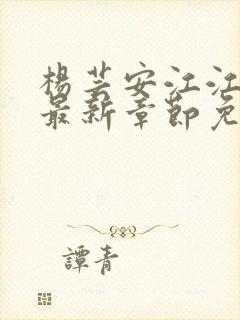 楊芸安江江
最新章節免
譚青